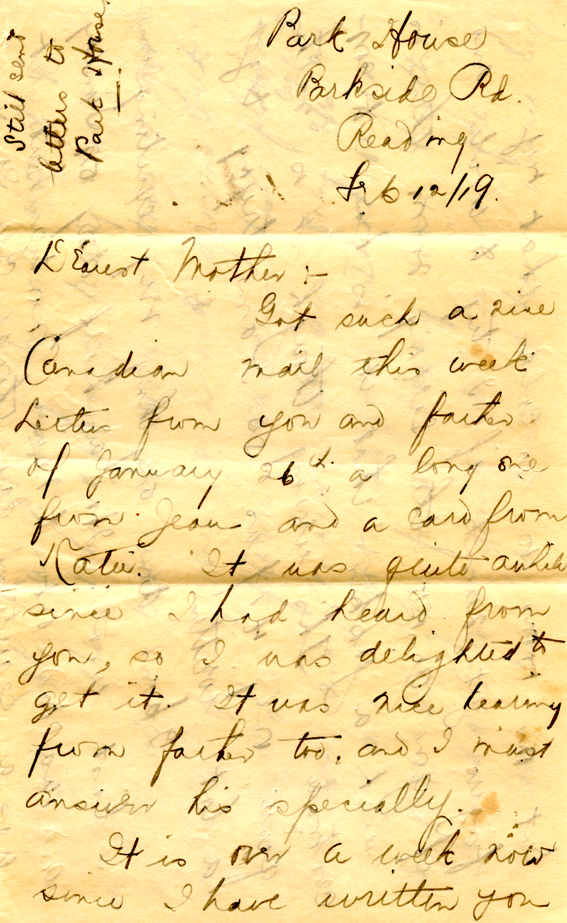 Still send
letters to
Park House.
Park House
Parkside Rd.
Reading
Feb 12/19.
Dearest Mother :-
Got such a nice
Canadian mail this week
Letter from you and father
of January 26th. a long one
from Jean and a card from
Katie. It was quite awhile
since I had heard from
you, so I was delighted to
get it. It was nice hearing
from father too, and I must
answer his specially.
It is over a week now
since I have written you